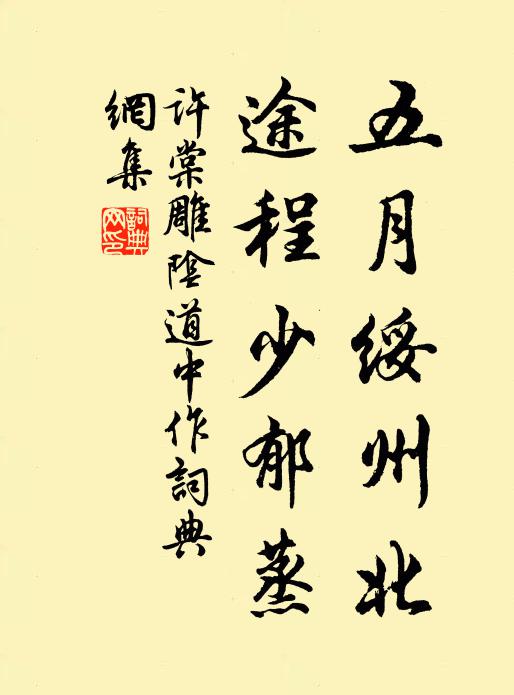 五月綏州北
途程少郁蒸
許棠雕陰道中作詞典
網集
詞典
网印